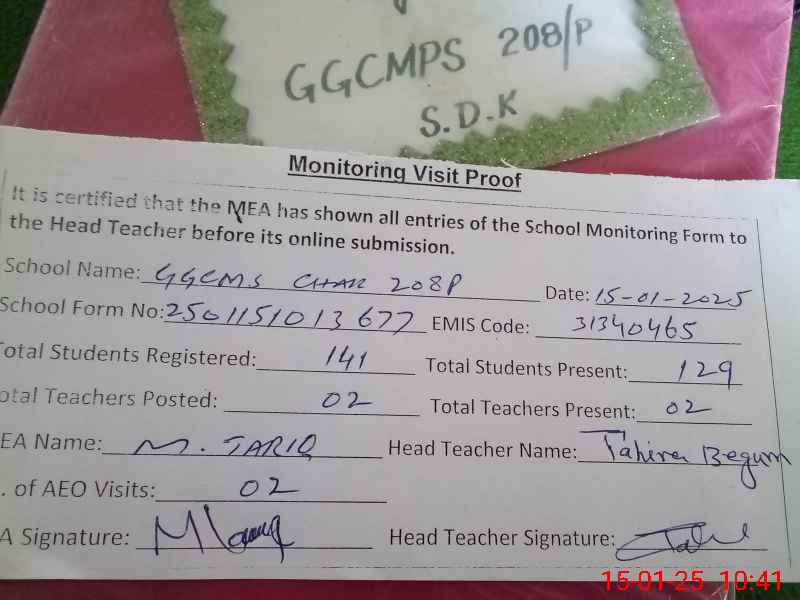 GGCMPS 208/P
S.D.K
Monitoring Visit Proof
It is certified that the MEA has shown all entries of the School Monitoring Form to
the Head Teacher before its online submission.
School Name: GGCMS CHAK 208P Date: 15-01-2025
School Form No: 2501151013677 EMIS Code: 31340465
otal Students Registered: 141 Total Students Present: 129
otal Teachers Posted: 02 Total Teachers Present: 02
EA Name: M. TARIQ Head Teacher Name: Tahira Begum
. of AEO Visits: 02
A Signature: Head Teacher Signature:
15-01-25 10:41